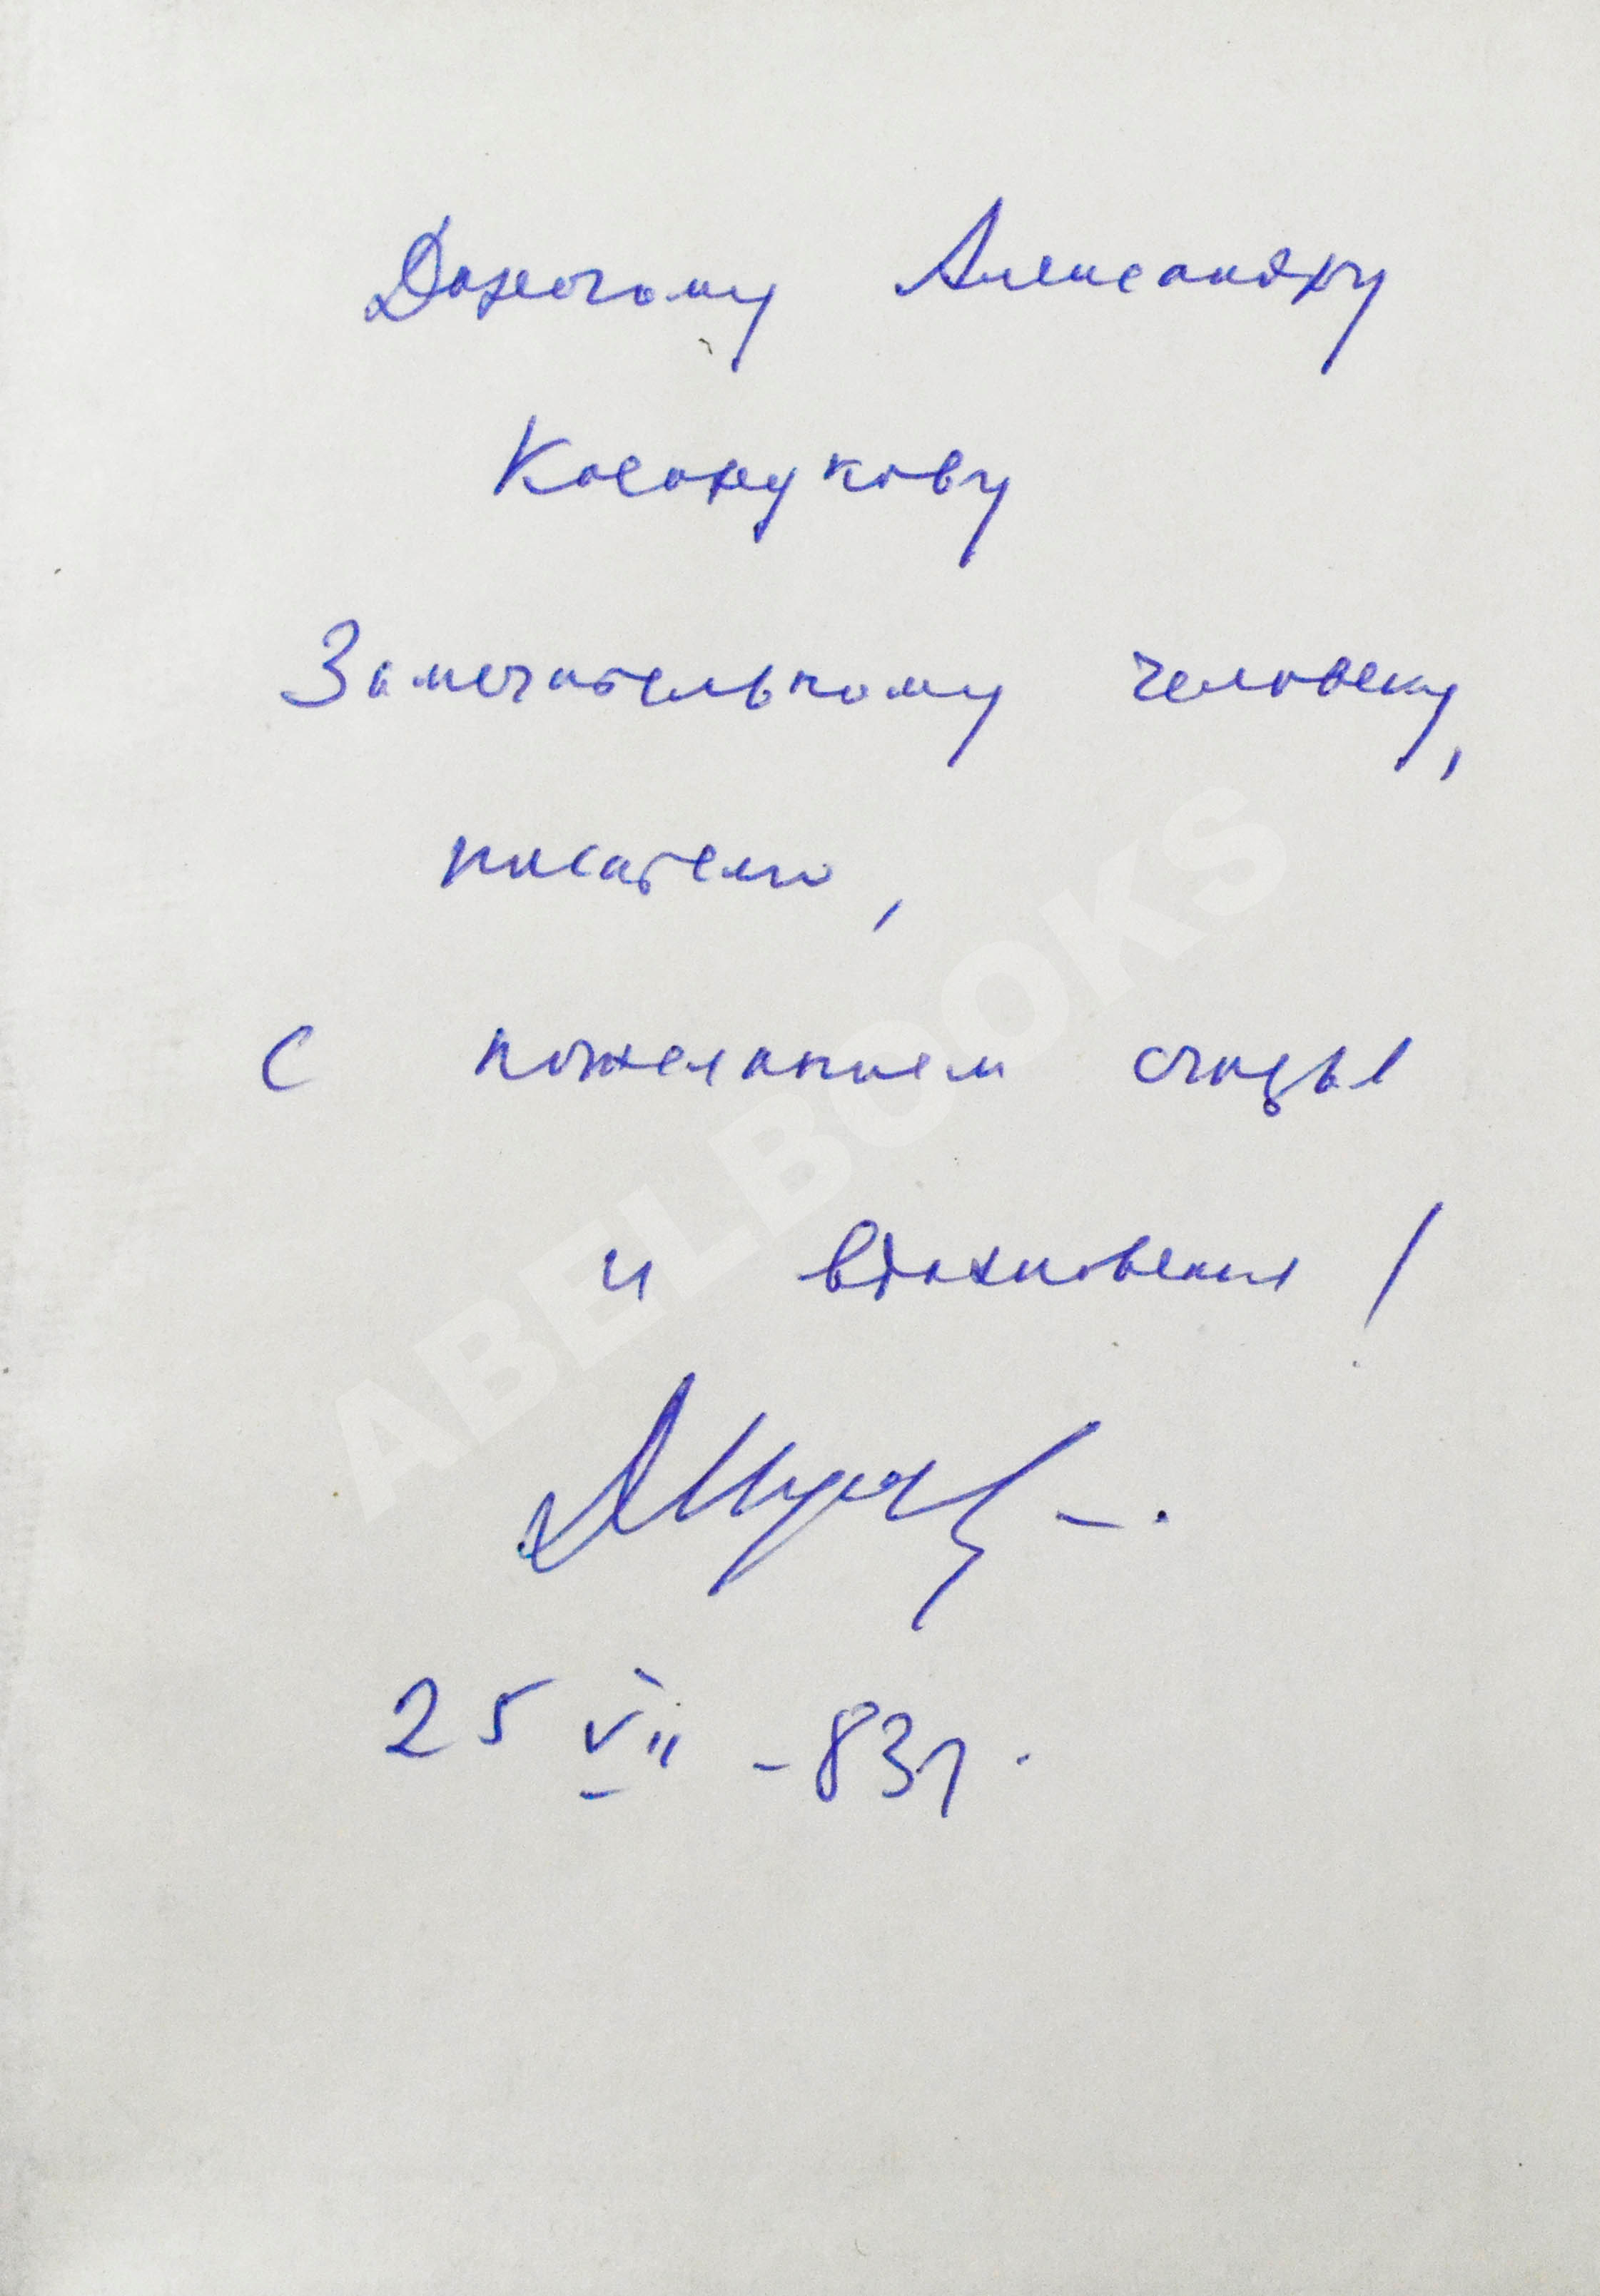 Дорогому Александру
Косанукову
Замечательному человеку,
писателю,
С пожеланием
и вдохновения!
25 VII - 83 г.
ABELBOOKS